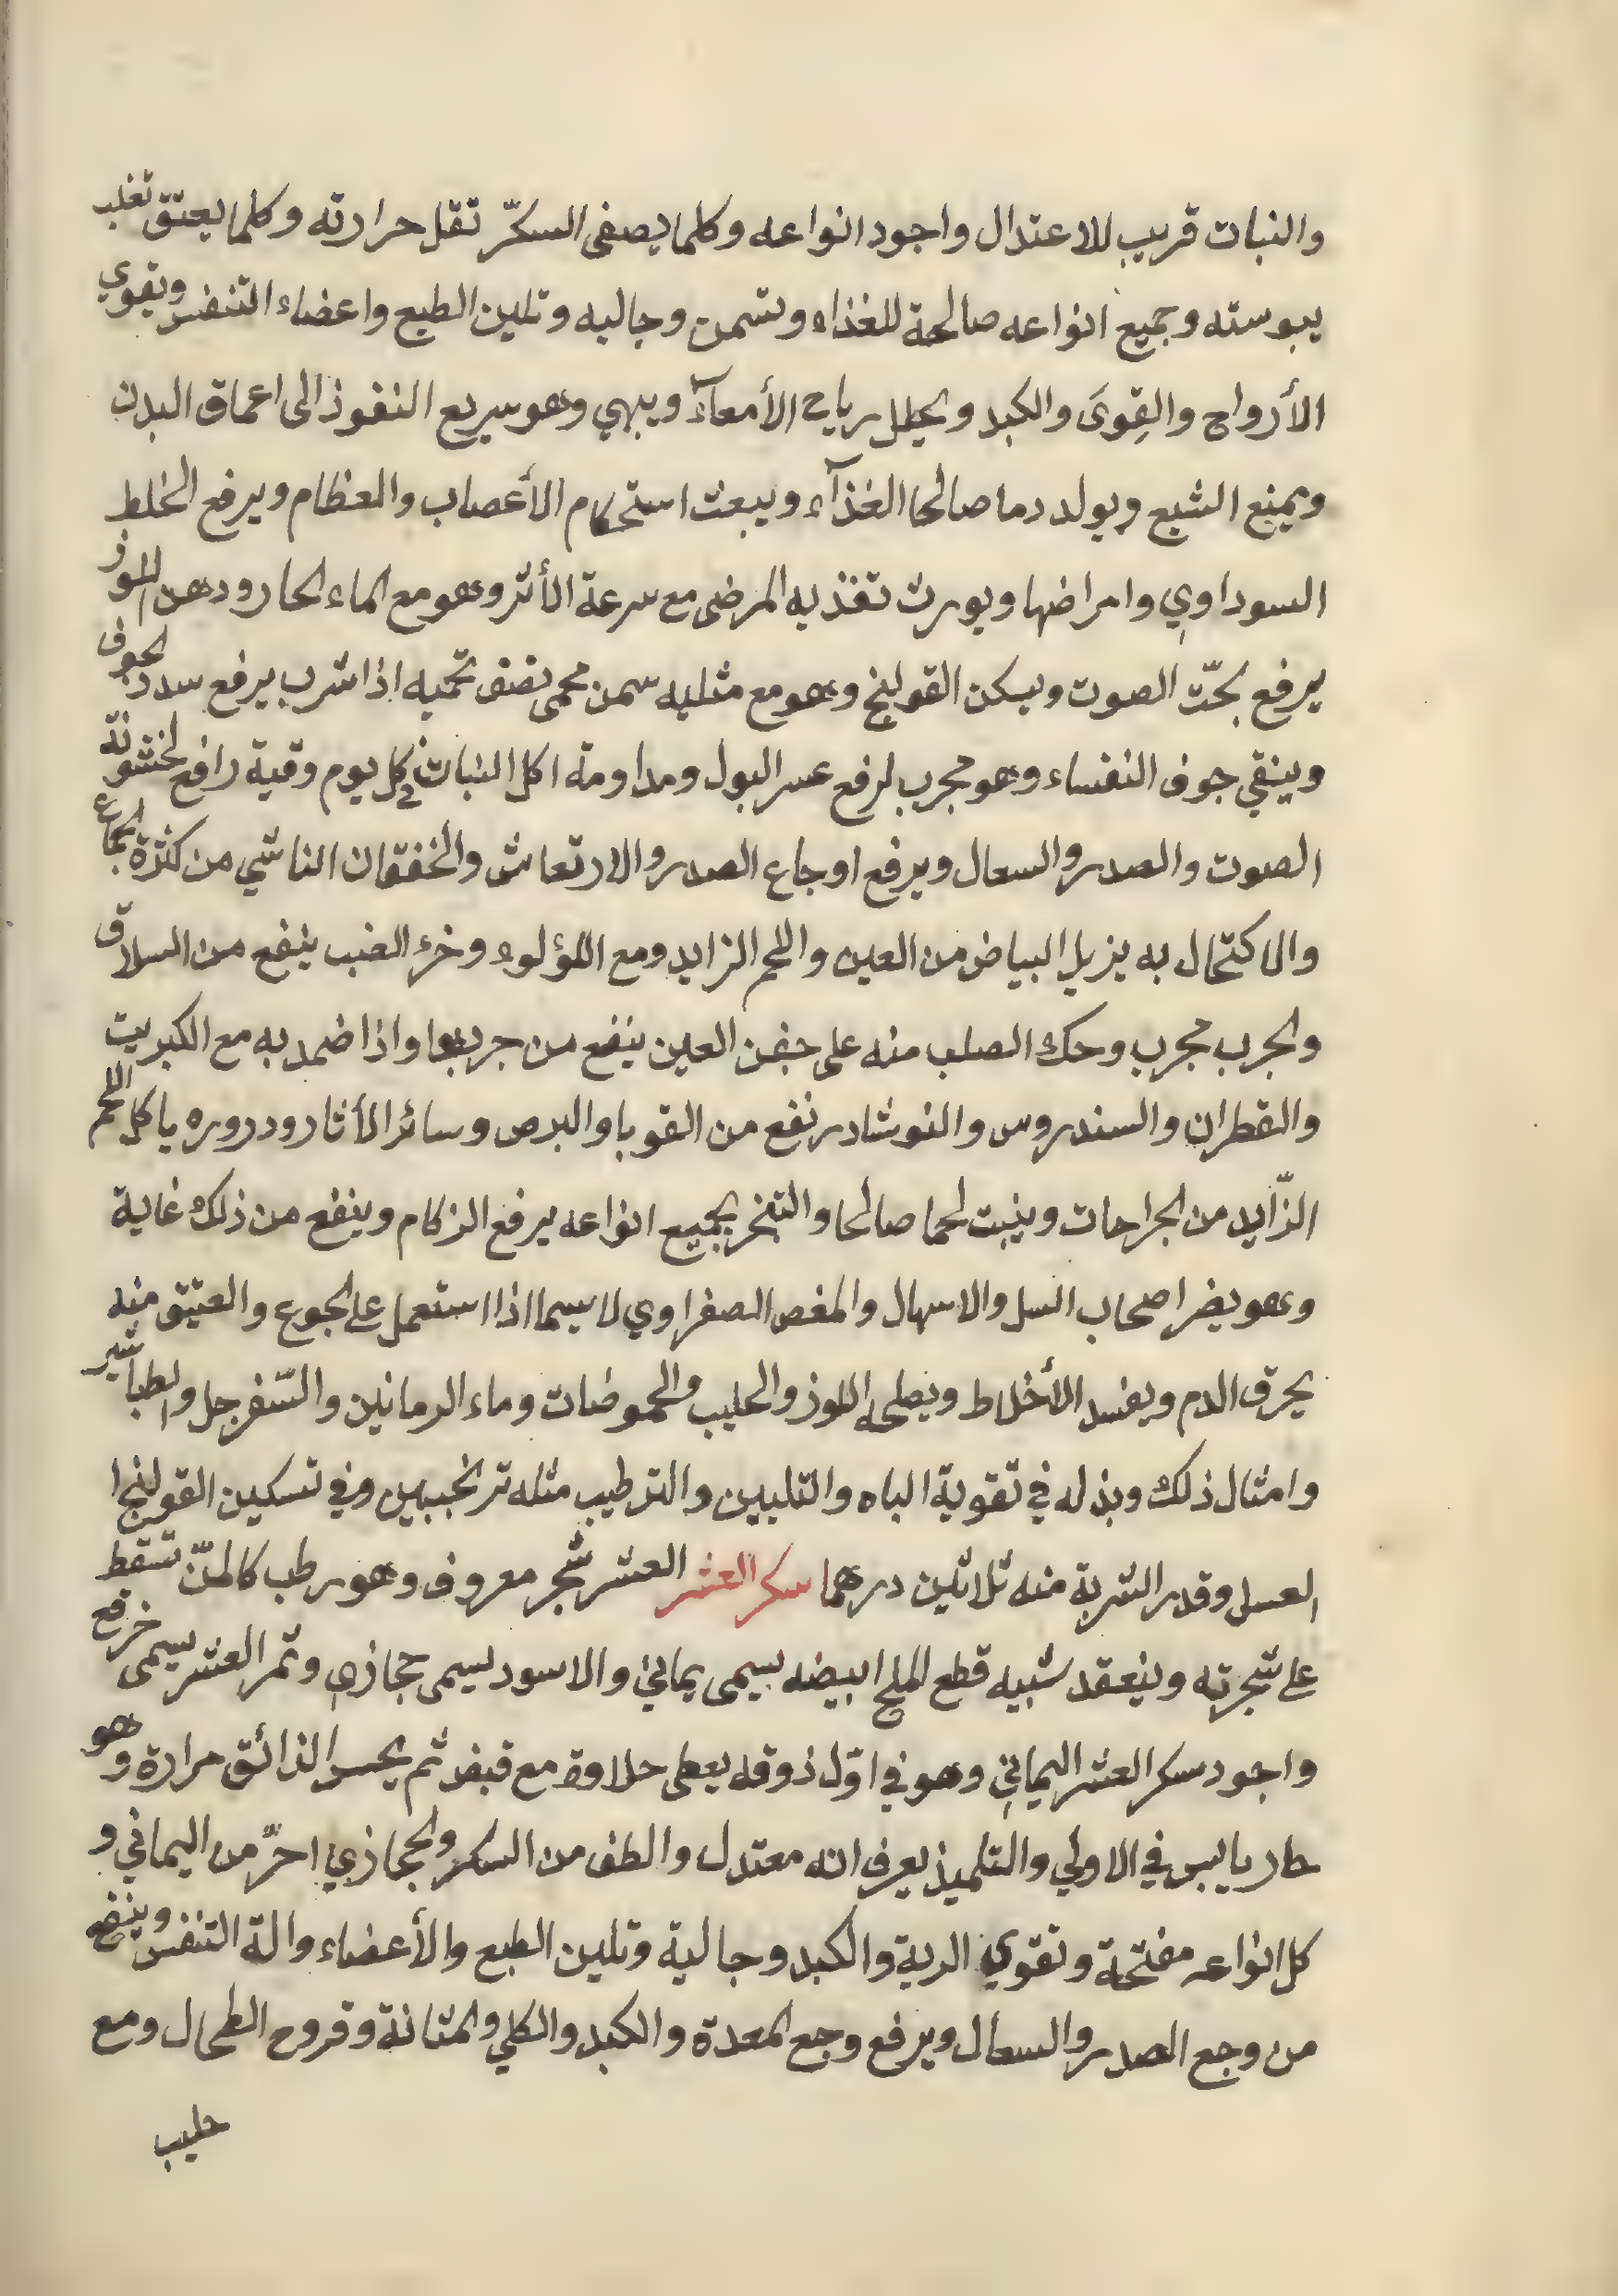 والنبات قريب للاعتدال واجود انواعه وكلما يصفى السكّر تقل حرارته وكلما يعتق تغلب
يبوسته وجميع انواعه صالحة للغذاء وتسمن وجاليه وتلين الطبع واعضاء التنفس وتقوي
الأرواح والقوى والكبد ويحلل رياح الأمعآء ويبهي وهو سريع النفوذ الى اعماق البدن
ويمنع الشبع ويولد دما صالحا الغذآء ويبعث استحكام الأعصاب والعظام ويرفع الخلط
السوداوي وامراضها ويورث تغذيه المرضى مع سرعة الأثر وهو مع الماء الحار ودهن اللوز
يرفع بحّت الصوت ويسكن القولنج وهو مع مثليه سمن محمى نصف تحميه اذا شرب يرفع سدد الجوف
وينقي جوف النفساء وهو مجرب لرفع عسر البول ومداومة اكل النبات في كل يوم وقية رافع لخشونة
الصوت والصدر والسعال ويرفع اوجاع الصدر والارتعاش والخفقان الناشي من كثرة الجماع
والاكتحال به يزيل البياض من العين واللحم الزايد ومع اللؤلوء وخرء الضب ينفع من السلاق
والجرب مجرب وحك الصلب منه على جفن العين ينفع من جربها واذا ضمد به مع الكبريت
والقطران والسندروس والنوشادر نفع من القوبا والبرص وسائر الأثار ودروره ياكل اللحم
الزّايد من الجراحات وينبت لحما صالحا والتبخر بجميع انواعه يرفع الزكام وينفع من ذلك غاية
وهو يضر اصحاب السل والاسهال والمغص الصفراوي لا سيما اذا استعمل على الجوع والعتيق منه
يحرق الدم ويفسد الأخلاط ويصلحه اللوز والحليب والحموضات وماء الرمانين والسّفرجل والطباشير
وامثال ذلك وبذله في تقوية الباه والتليين والترطيب مثله ترنجبين وفي تسكين القولنج ا
لعسل وقدر الشربة منه ثلاثين درهما سكر العشر العشر شجر معروف وهو رطب كالمنّ تسقط
على شجرته وينعقد شبيه قطع الملح ابيضه يسمى يماني والاسود يسمى حجازي وثمر العشر يسمى خرفع
واجود سكر العشر اليماني وهو في اوّل ذوقه يعطى حلاوة مع قبض ثم يحس الذائق مرارة وهو
حار يابس في الاولي والتلميذ يعرف انه معتدل والطف من السكر والحجازي احرّ من اليماني و
كل انواعه مفتحة وتقوي الرية والكبد وجالية وتلين الطبع والأعضاء والة التنفس وينفع
من وجع الصدر والسعال ويرفع وجع المعدة والكبد والكلي والمثانة وقروح الطحال ومع
حليب